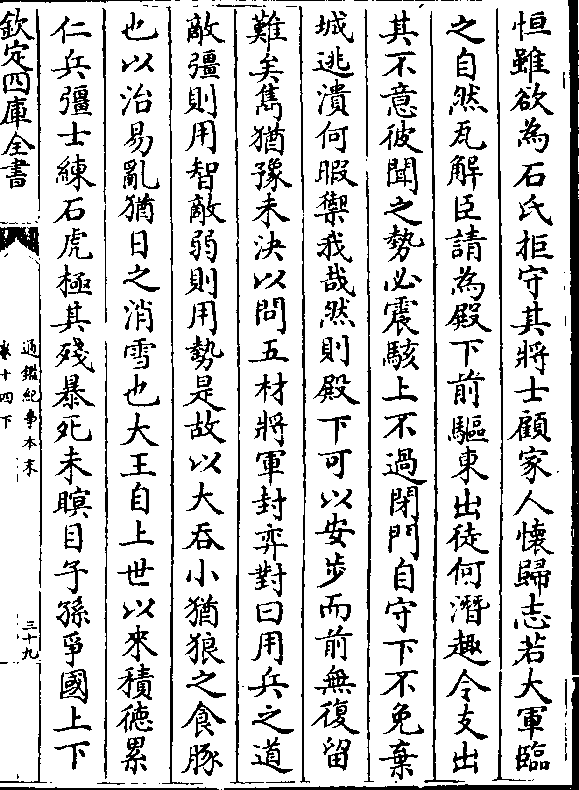 恒雖欲為石氏拒守其將士顧家人懷歸志若大軍臨
之自然瓦解臣請為殿下前驅東出徒何潛趣令支出
其不意彼聞之勢必震駭上不過閉門自守下不免棄
城逃潰何暇禦我哉然則殿下可以安步而前無復留
難矣雋猶豫未決以問五材將軍封弈對曰用兵之道
敵彊則用智敵弱則用勢是故以大吞小猶狼之食豚
也以治易亂猶日之消雪也大王自上世以來積德累
仁兵彊士練石虎極其殘暴死未瞑目子孫爭國上下
欽定四庫全書
通鑑紀事本末
卷十四下
三十九